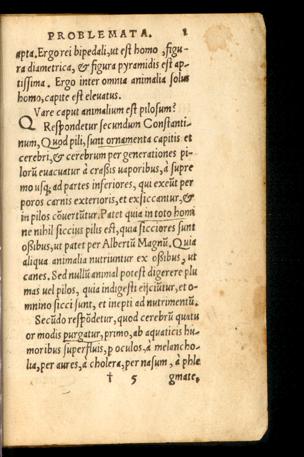 PROBLEMATA. 1
apta. Ergo rei bipedali, ut est homo, figu-
ra diametrica, & figura pyramidis est ap-
tissima. Ergo inter omnia animalia solus
homo, capite est eleuatus.
Vare caput animalium est pilosum?
Q Respondetur secundum Constanti-
num, Quod pili, sunt ornamenta capitis et
cerebri, & cerebrum per generationes pi-
lorū euacuatur à crassis uaporibus, à supre
mo usq; ad partes inferiores, qui exeūt per
poros carnis exterioris, et exsiccantur, &
in pilos cōuertūtur. Patet quia in toto homi
ne nihil siccius pilis est, quia sicciores sunt
ossibus, ut patet per Albertū Magnū. Quia
aliqua animalia nutriuntur ex ossibus, ut
canes. Sed nullū animal potest digerere plu
mas uel pilos, quia indigesti eijciūtur, et o-
mnino sicci sunt, et inepti ad nutrimentū.
Secūdo respōdetur, quod cerebrū quatu
or modis purgatur, primo, ab aquaticis hu-
moribus superfluis, p oculos, à melancho-
lia, per aures, à cholera, per nasum, à phle
† 5 gmate,